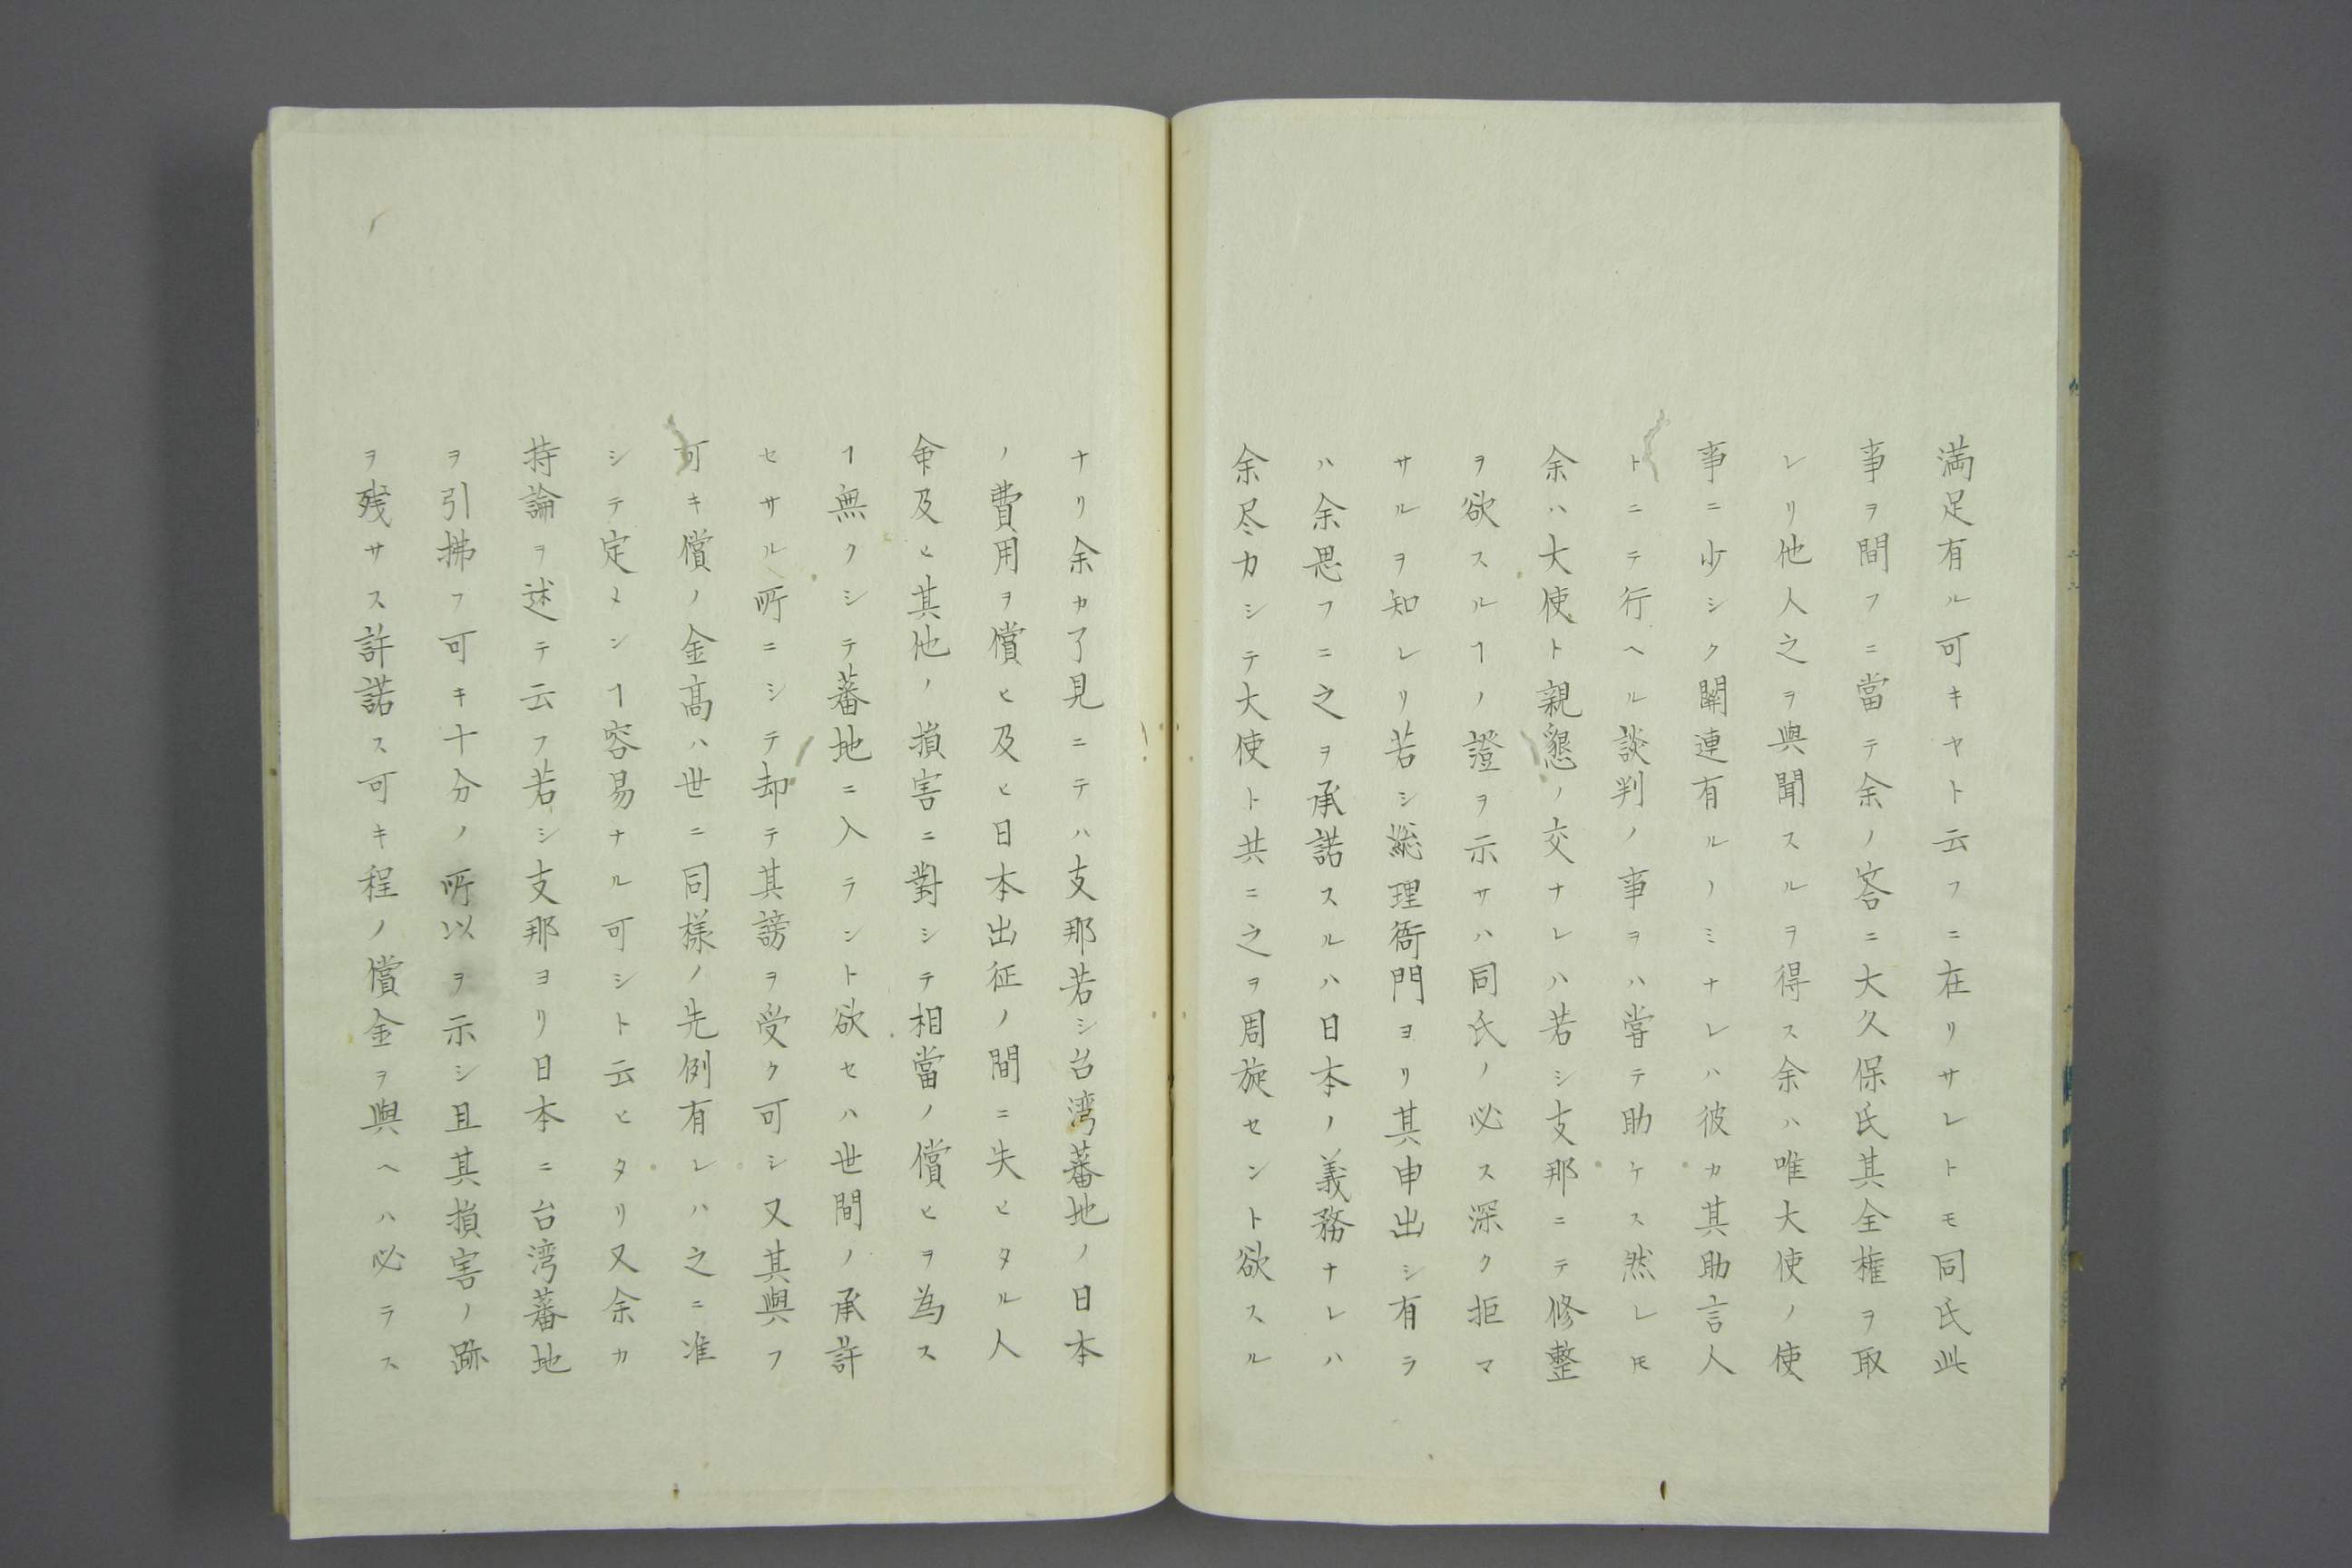 満足有ル可キヤト云フニ在リサレトモ同氏此
事ヲ問フニ當テ余ノ答ニ大久保氏其全権ヲ取
レリ他人之ヲ與聞スルヲ得ス余ハ唯大使ノ使
事ニ少シク関連有ルノミナレハ彼カ其助言人
トニテ行ヘル談判ノ事ヲハ嘗テ助ケス然レ𪜈
余ハ大使ト親懇ノ交ナレハ若シ支那ニテ修整
ヲ欲スルヿノ證ヲ示サハ同氏ノ必ス深ク拒マ
サルヲ知レリ若シ総理衙門ヨリ其申出シ有ラ
ハ余思フニ之ヲ承諾スルハ日本ノ義務ナレハ
余尽力シテ大使ト共ニ之ヲ周旋セント欲スル
ナリ余カ了見ニテハ支那若シ台湾蕃地ノ日本
ノ費用ヲ償ヒ及ヒ日本出征ノ間ニ失ヒタル人
命及ヒ其他ノ損害ニ對シテ相當ノ償ヒヲ為ス
ヿ無クシテ蕃地ニ入ラント欲セハ世間ノ承許
セサル所ニシテ却テ其謗ヲ受ク可シ又其與フ
可キ償ノ金高ハ世ニ同様ノ先例有レハ之ニ准
シテ定メンヿ容易ナル可シト云ヒタリ又余カ
持論ヲ述テ云フ若シ支那ヨリ日本ニ台湾蕃地
ヲ引拂フ可キ十分ノ所以ヲ示シ且其損害ノ跡
ヲ残サス許諾ス可キ程ノ償金ヲ與ヘハ必ラス